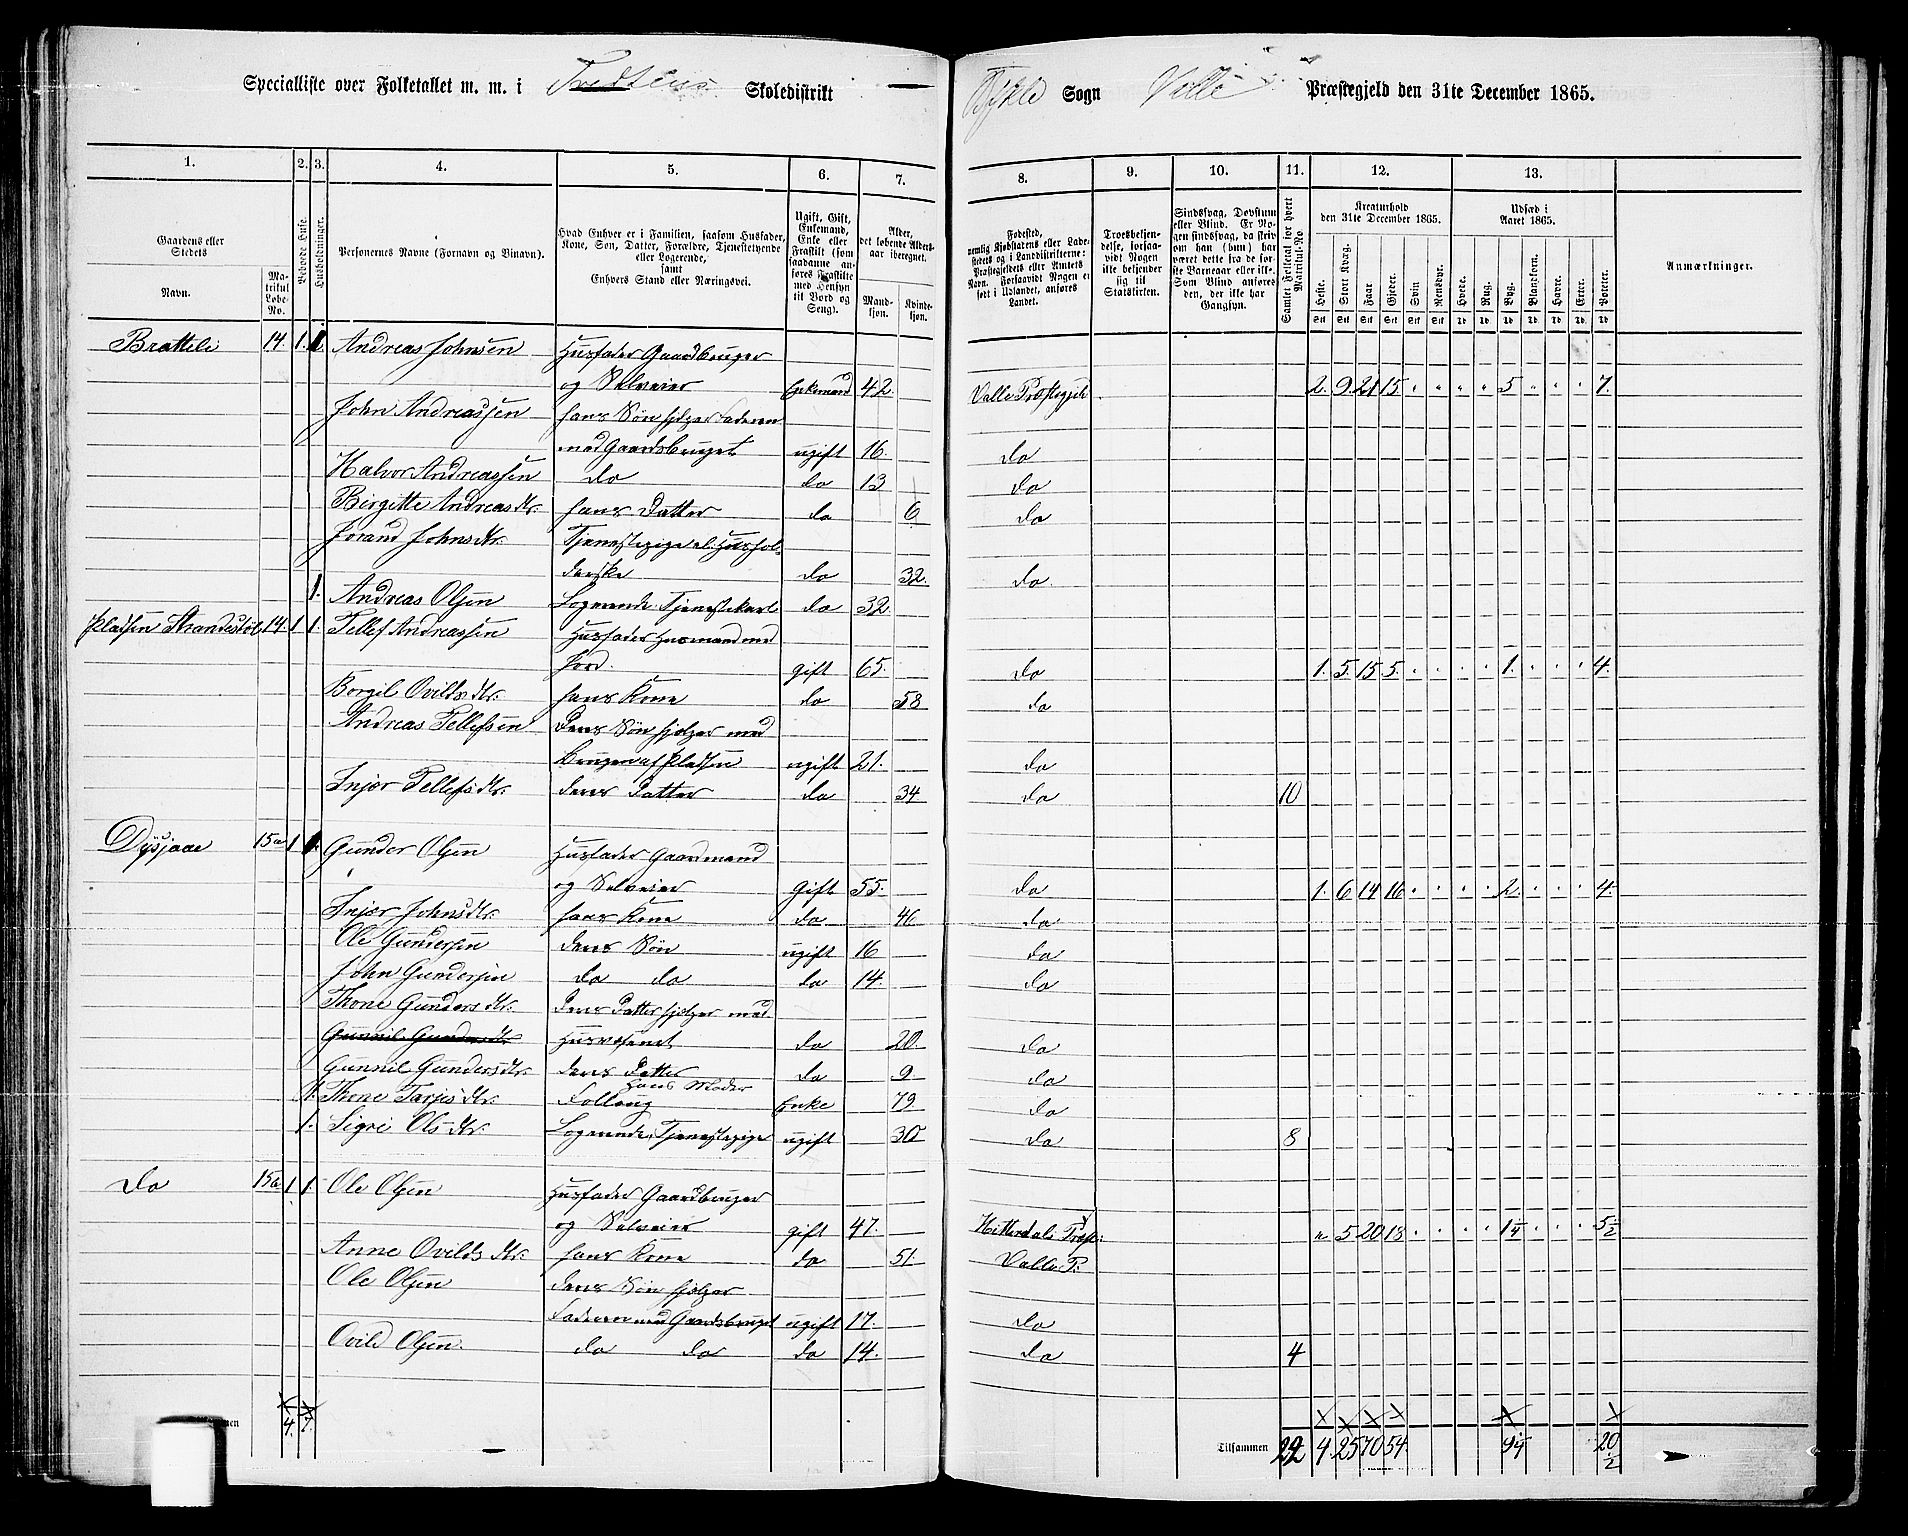 Specialliste over Folketallet m. m. i Skoledistrikt Bykle Sogn Valle Præstegjeld den 31te December 1865.
1. 2. 3. 4. 5. 6. 7. 8. 9. 10. 11. 12. 13.
Gaardens eller Stedets
Navn.
Matrikul Løbe-No.
Beboede Huse.
Husholdninger.
Personernes Navne (Fornavn og Binavn).
Hvad Enhver er i Familien, saasom Husfader, Kone, Søn, Datter, Forældre, Tjenestetyende eller Logerende,
samt
Enhvers Stand eller Næringsvei.
Ugift, Gift, Enkemand, Enke eller Fraskilt (som saadanne anføres Fraskilte med Hensyn til Bord og Seng).
Alder, det løbende Alders-aar iberegnet.
Mand-kjøn.
Kvinde-kjøn.
Fødested, nemlig Kjøbstadens eller Ladestedets og i Landdistrikterne: Præstegjeldets eller Amtets Navn. Forsaavidt Nogen er født i Udlandet, anføres Landet.
Troesbekjendelse, forsaavidt Nogen ikke bekjender sig til Statskirken.
Sindssvag, Døvstum eller Blind. Er Nogen sindssvag, da skriv om han (hun) har været dette fra de første Barneaar eller ikke. Som Blind anføres den, der ikke har Gangsyn.
Samlet Folketal for hvert Matrikul-No
Kreaturhold den 31te December 1865.
Heste. Stort Kvæg. Faar Gjeder. Svin Rensdyr.
Udsæd i Aaret 1865.
Hvede. Rug. Byg. Blandkorn. Havre. Erter. Poteter.
Anmærkninger.
Bratteli 14. 1. 1. Andreas Johnsen Husfader Gaardbruger
og Selveier Enkemand 42. Valle Præstegjeld 2. 9. 21 15. 5 7.
John Andreassen hans Søn hjelper Faderen
med Gaardsbruget ugift 16. do
Halvor Andreassen do do 13 do
Birgitte Andreasdtr. hans Datter do 6 do
Jorand Johnsdtr. Tjenestepige el. Hushol-
derske do 32. do
1. Andreas Olsen Logerende Tjenestekarl do 32
Pladsen Strandestøl 14. 1 1. Tellef Andreassen Husfader Husmand med
Jord. gift 65. do 1. 5. 15 5. 1. 4.
Borgil Ovildsdtr. hans Kone do 58 do
Andreas Tellefsen Deres Søn hjelper med
brugen af Pladsen ugift 21. do
Injer Tellefsdtr. deres Datter do 34 do 10
Dysjaae 15a 1 1. Gunder Olsen Husfader Gaardmand
og Selveier Gift 55. do 1. 6 14 16 2. 4.
Injer Johnsdtr. hans Kone do 46 do
Ole Gundersen deres Søn ugift 16 do
John Gundersen do do do 14. do
Thone Gundersdtr. deres Datter hjelper med
Gunnil Gundersdtr Husvæsenet do 20. do
Gunnil Gundersdtr. deres Datter do 9. do
1. Thone Tarjesdtr. hans Moder
Enke 79 do
1. Sigri Olsdtr. Logerende, Tjenestepige ugift 30 do 8
do 15b 1 1. Ole Olsen Husfader Gaardbruger
og Selveier gift 47. Hitterdals Præst: 5 20 18 1¼ 5½
Anne Ovildsdtr. hans Kone do 51. Valle P:
Ole Olsen deres Søn hjelper
Faderen med Gaardsbruget ugift 17. do
Ovild Olsen. do do do 14. do 4
4. 7.
Tilsammen 22 4 25 70 54 9¼ 20½